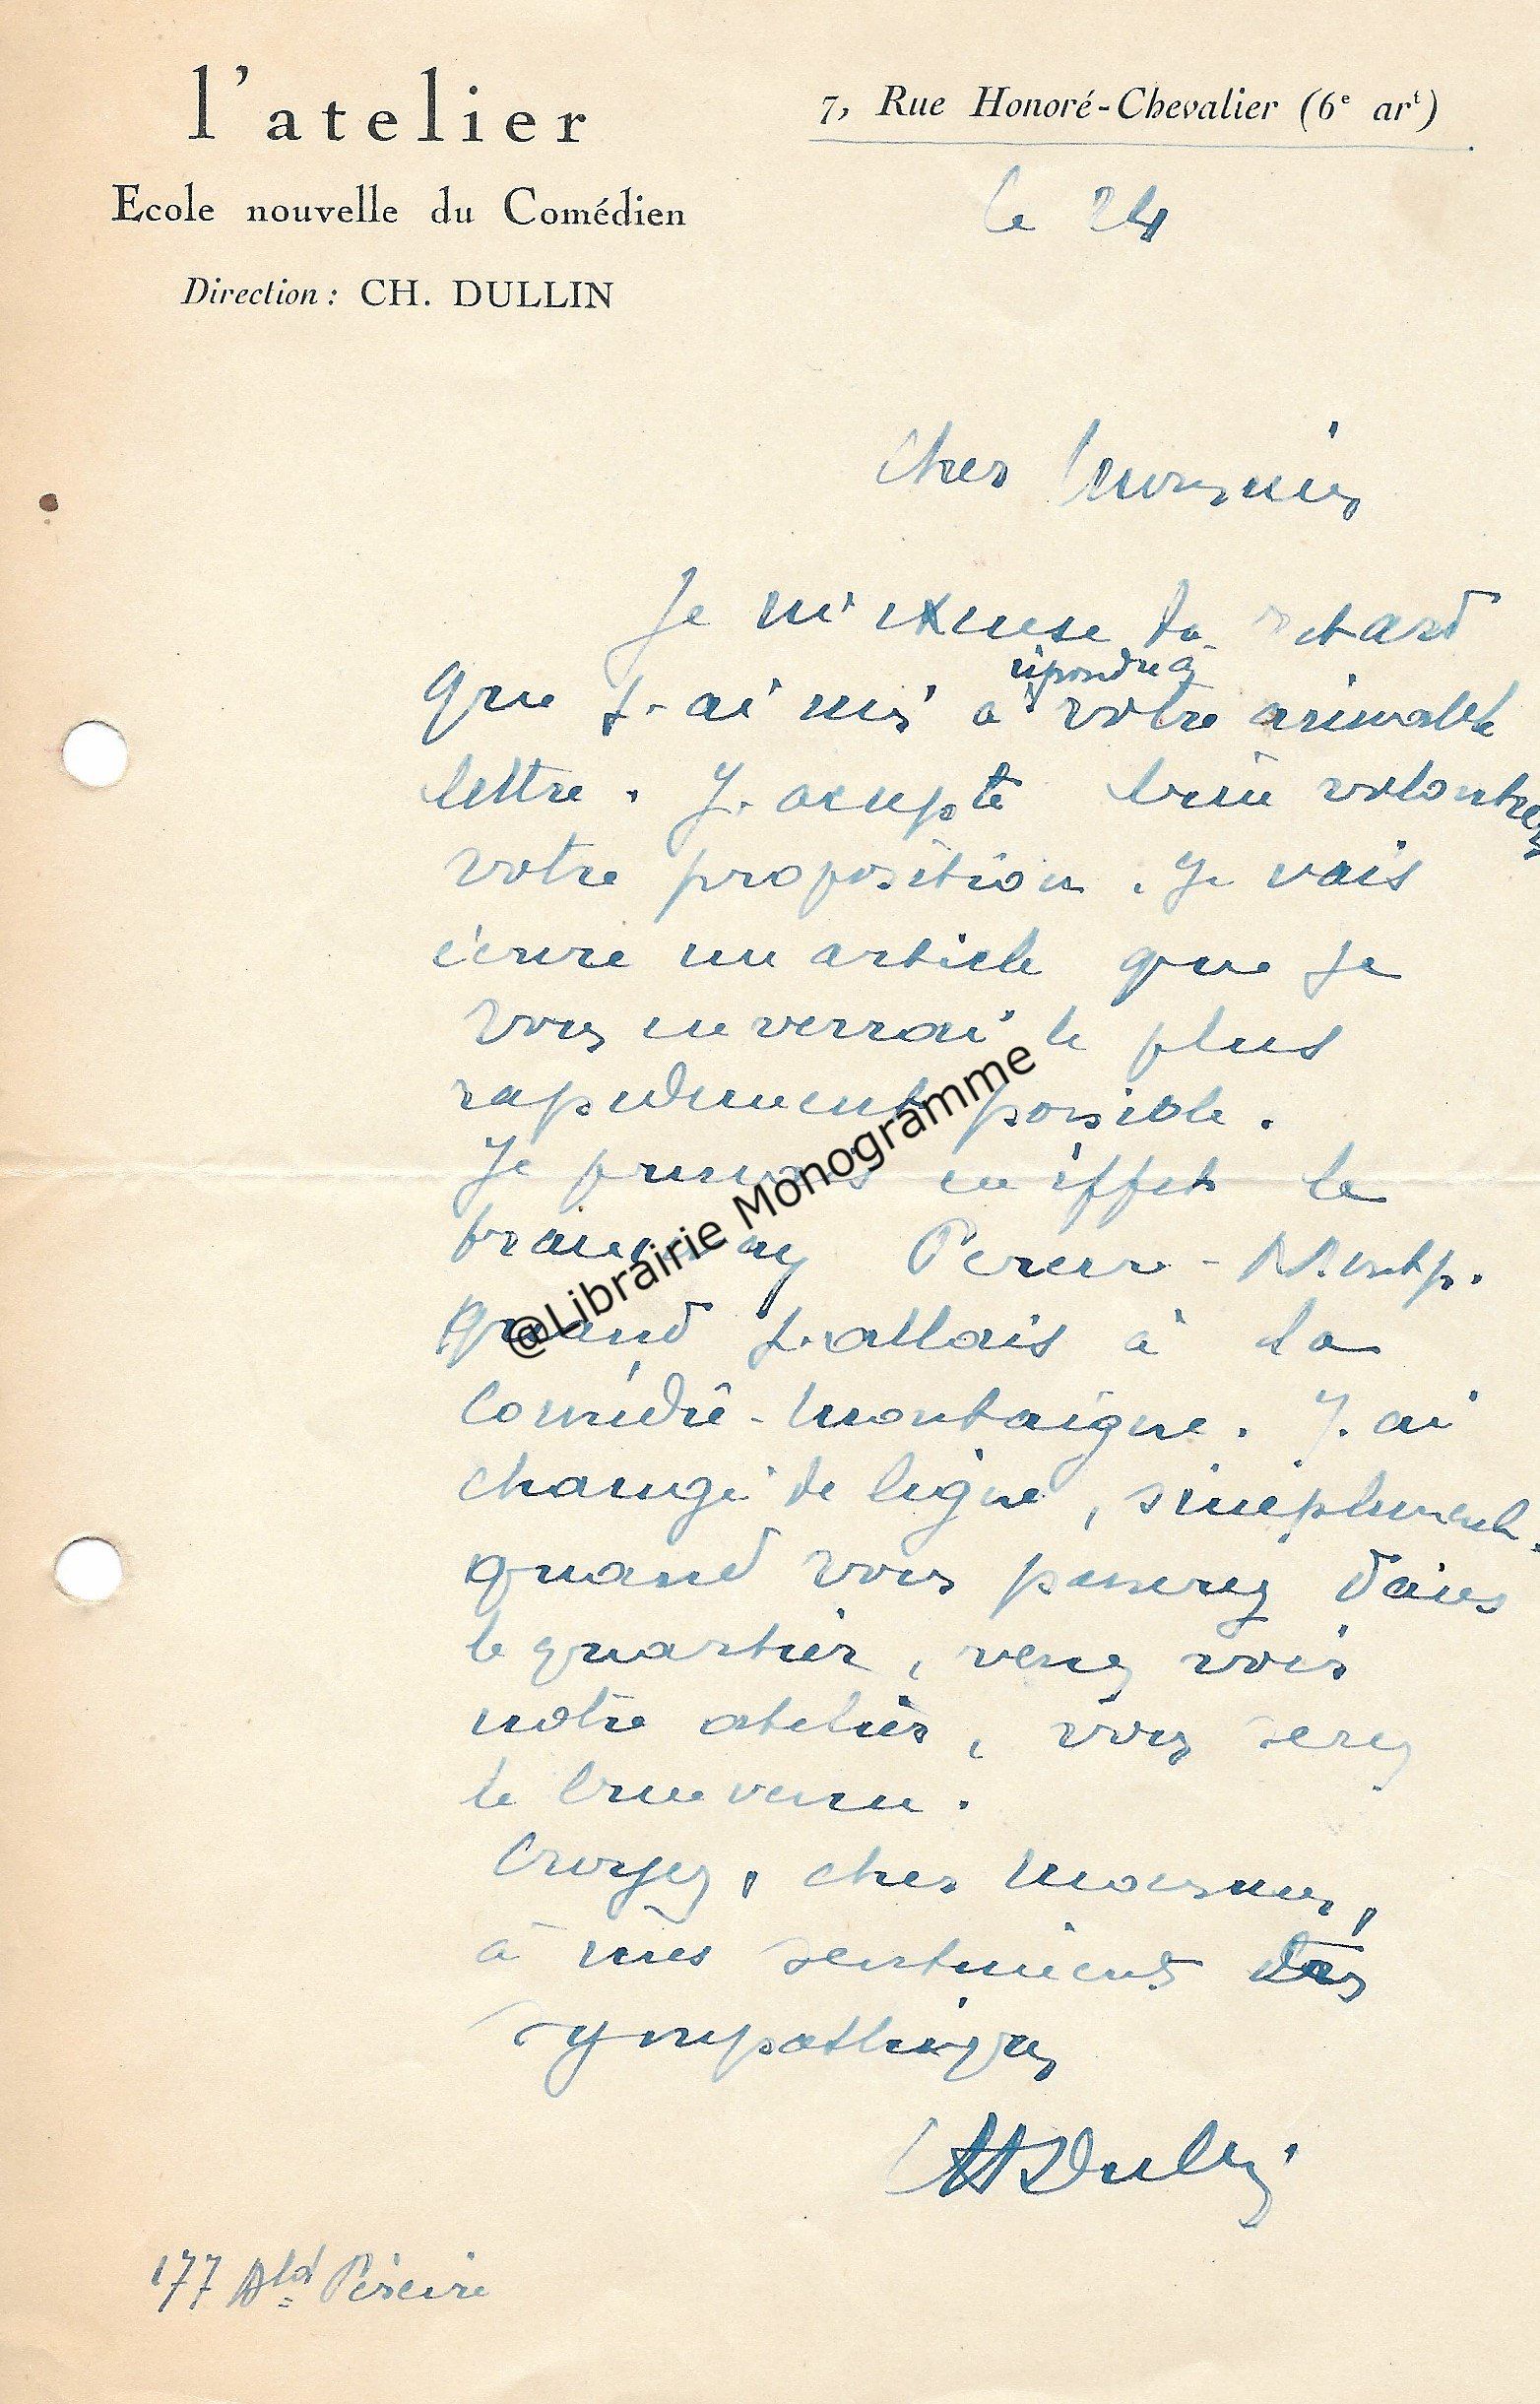 l'atelier
Ecole nouvelle du Comédien
Direction : CH. DULLIN
7, Rue Honoré-Chevalier (6e art)
le 24
Cher
Je m'excuse du retard
que j'ai mis à répondre à votre aimable
lettre. J'accepte bien volontiers
votre proposition. Je vais
écrire un article que je
vous enverrai le plus
rapidement possible.
Je prenais en effet le
tramway Pereire - Montp.
quand j'allais à la
Comédie-Montaigne. J'ai
changé de ligne, simplement.
quand vous passerez dans
le quartier, venez voir
notre atelier, vous serez
le bienvenu.
Croyez, cher
à mes sentiments très
sympathiques
Ch Dullin
177 Bld Péreire
@Librairie Monogramme